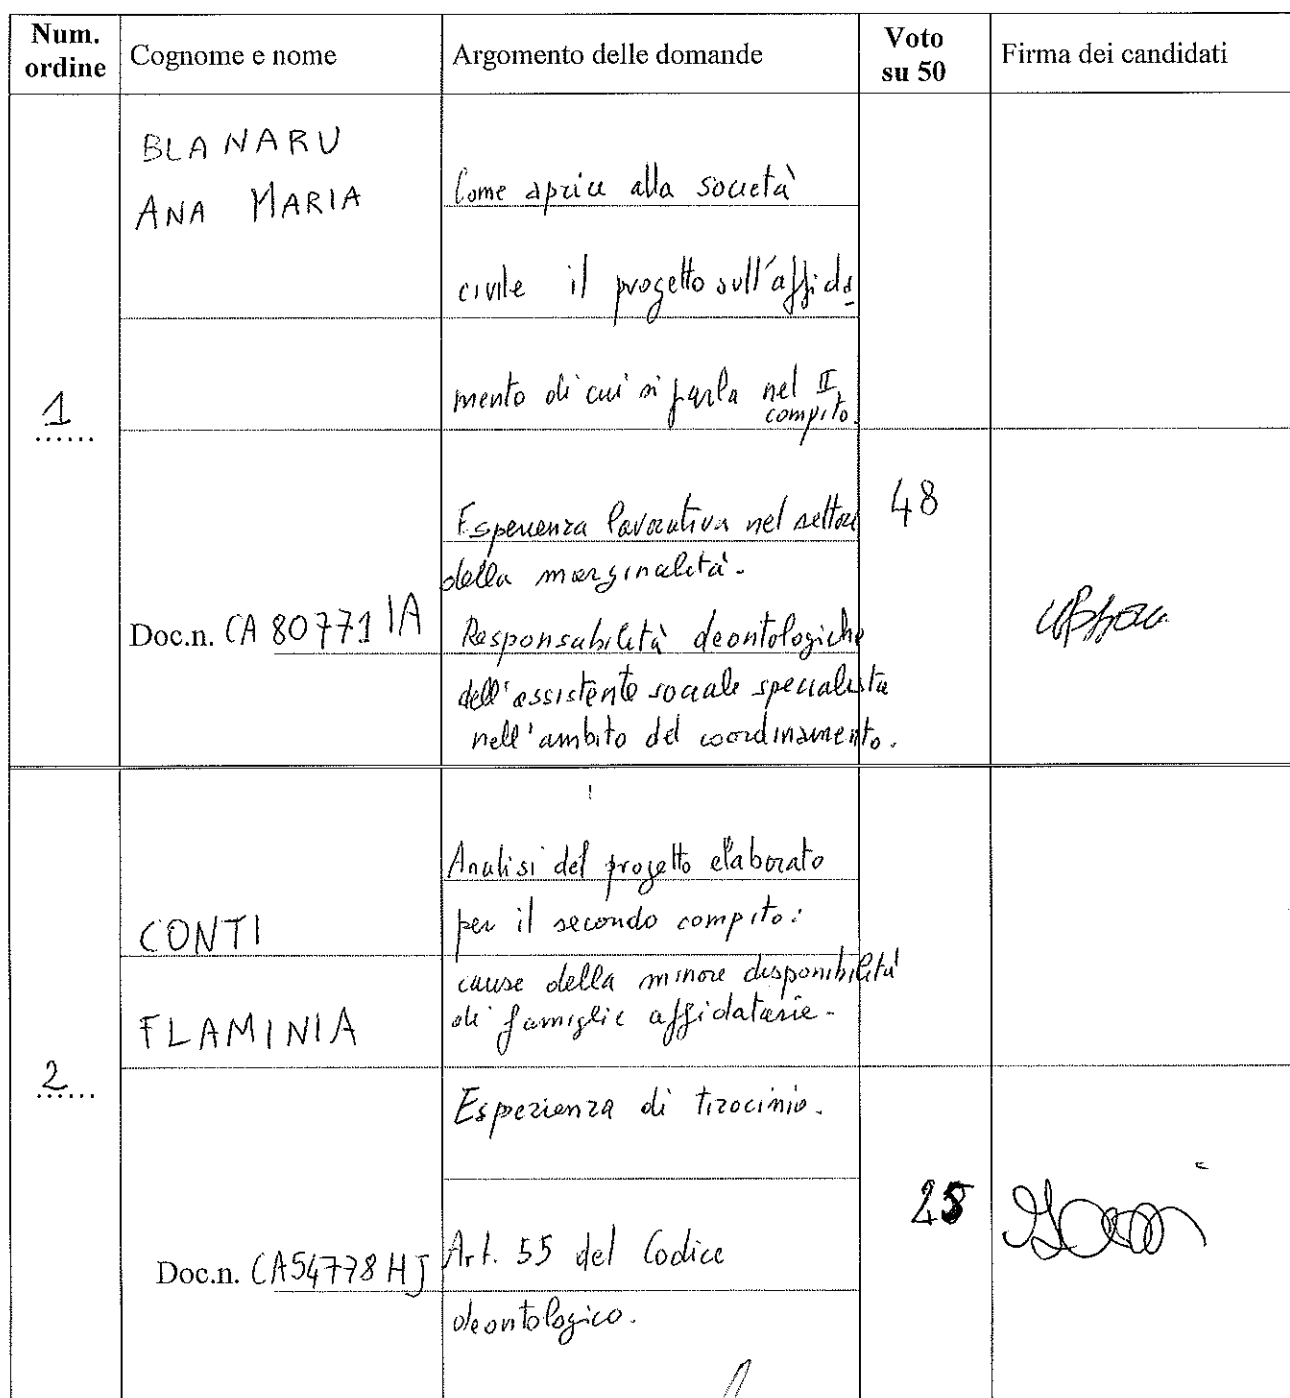 Num. ordine Cognome e nome Argomento delle domande Voto su 50 Firma dei candidati
BLANARU
ANA MARIA
Come aprire alla società
civile il progetto sull'affida
mento di cui si parla nel II
compito.
1
Esperienza lavorativa nel settore
della marginalità.
48
Doc.n. CA 80771 IA
Responsabilità deontologiche
dell'assistente sociale specialista
nell'ambito del coordinamento.
Analisi del progetto elaborato
CONTI
per il secondo compito:
cause della minore disponibilità
FLAMINIA
di famiglie affidatarie.
2
Esperienza di tirocinio.
Doc.n. CA54778HJ
Art. 55 del Codice
deontologico.